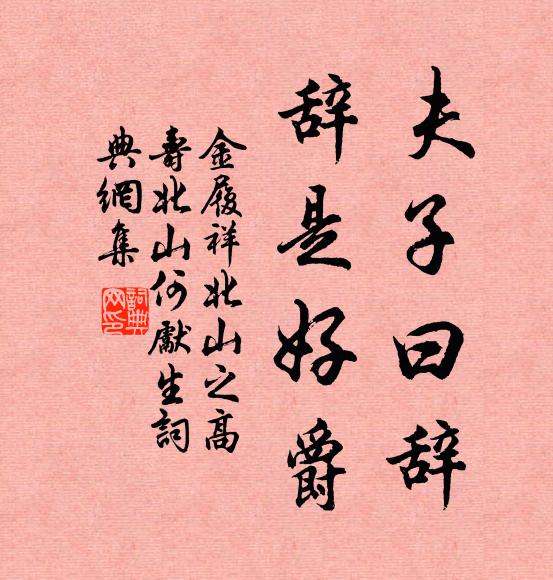 夫子曰辞
辞是好爵
金履祥北山之高
壽北山何獻生詞
典網集
詞典網印